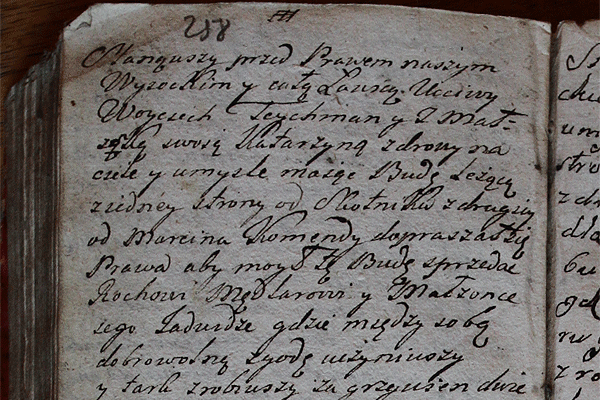 258
Stanąwszy przed Prawem naszym
Wysockim y całą Ławicą. Uczciwy
Woyciech Teychman y z Mał-
rząką swoią Katarzyną zdrowy na
ciele y umyśle maiąc Budę leżącą
z iedney strony od Skotnika z drugiey
od Marcina Komendy dopraszał się
Prawa aby mogł tę Budę sprzedac
Rochowi Mędlarowi y Małzonce
iego Jadwidze gdzie między sobą
dobrowolną zgodę uczyniwszy
y targ zrobiwszy za grzywien dwie